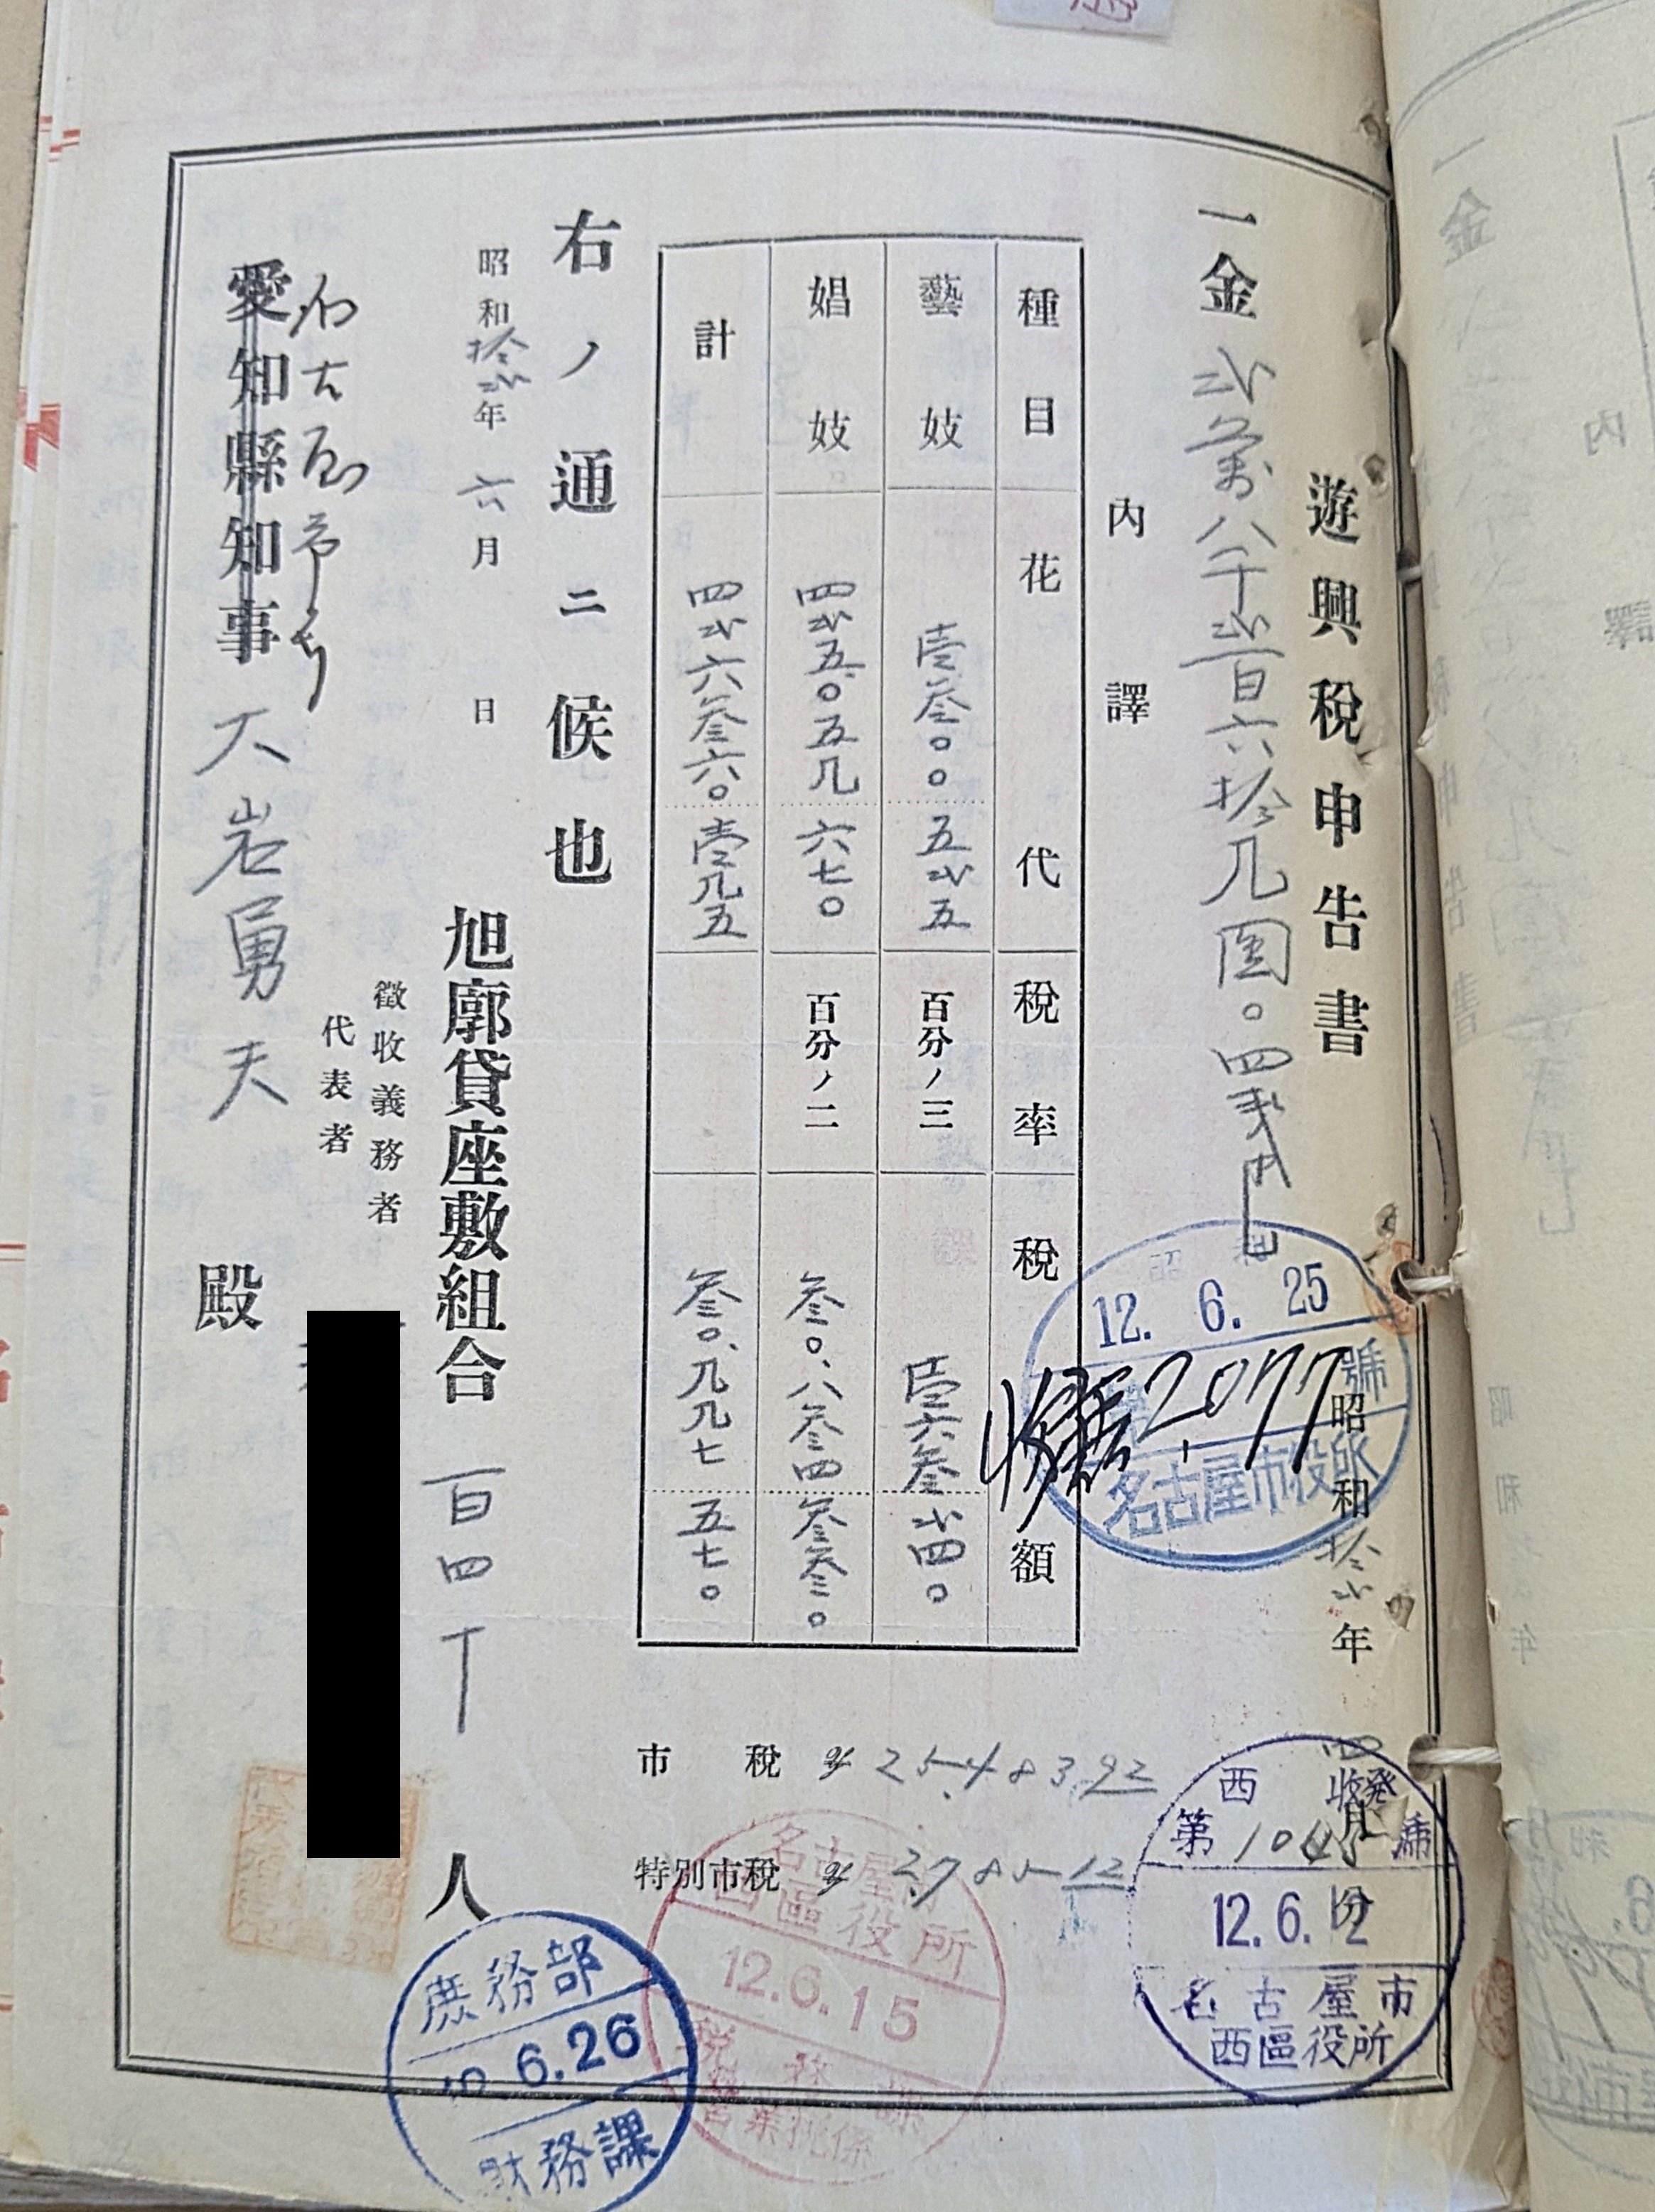 遊興稅申告書
昭和拾弐年四月分
一金弐萬八千弐百六拾九圓〇四銭也
內譯
種目 花代 稅率 稅額
藝妓 壱参〇〇五弐五 百分ノ三 壱六参弐四〇
娼妓 四弐五〇五九六七〇 百分ノ二 参〇、八参四参参〇
計 四弐六参六〇壱九五 参〇、九九七五七〇
市稅 〃 25483.92
特別市稅 〃 2785.12
右ノ通ニ候也
昭和拾弐年六月 日
旭廓貸座敷組合 百四十 人
徵收義務者
代表者
名古屋市長
愛知縣知事 大岩勇夫 殿
12.6.25
號
2077
名古屋市役所
西 收發
第1045號
12.6.12
名古屋市
西區役所
名古屋市
西區役所
12.6.15
稅務課
庶務部
12.6.26
財務課